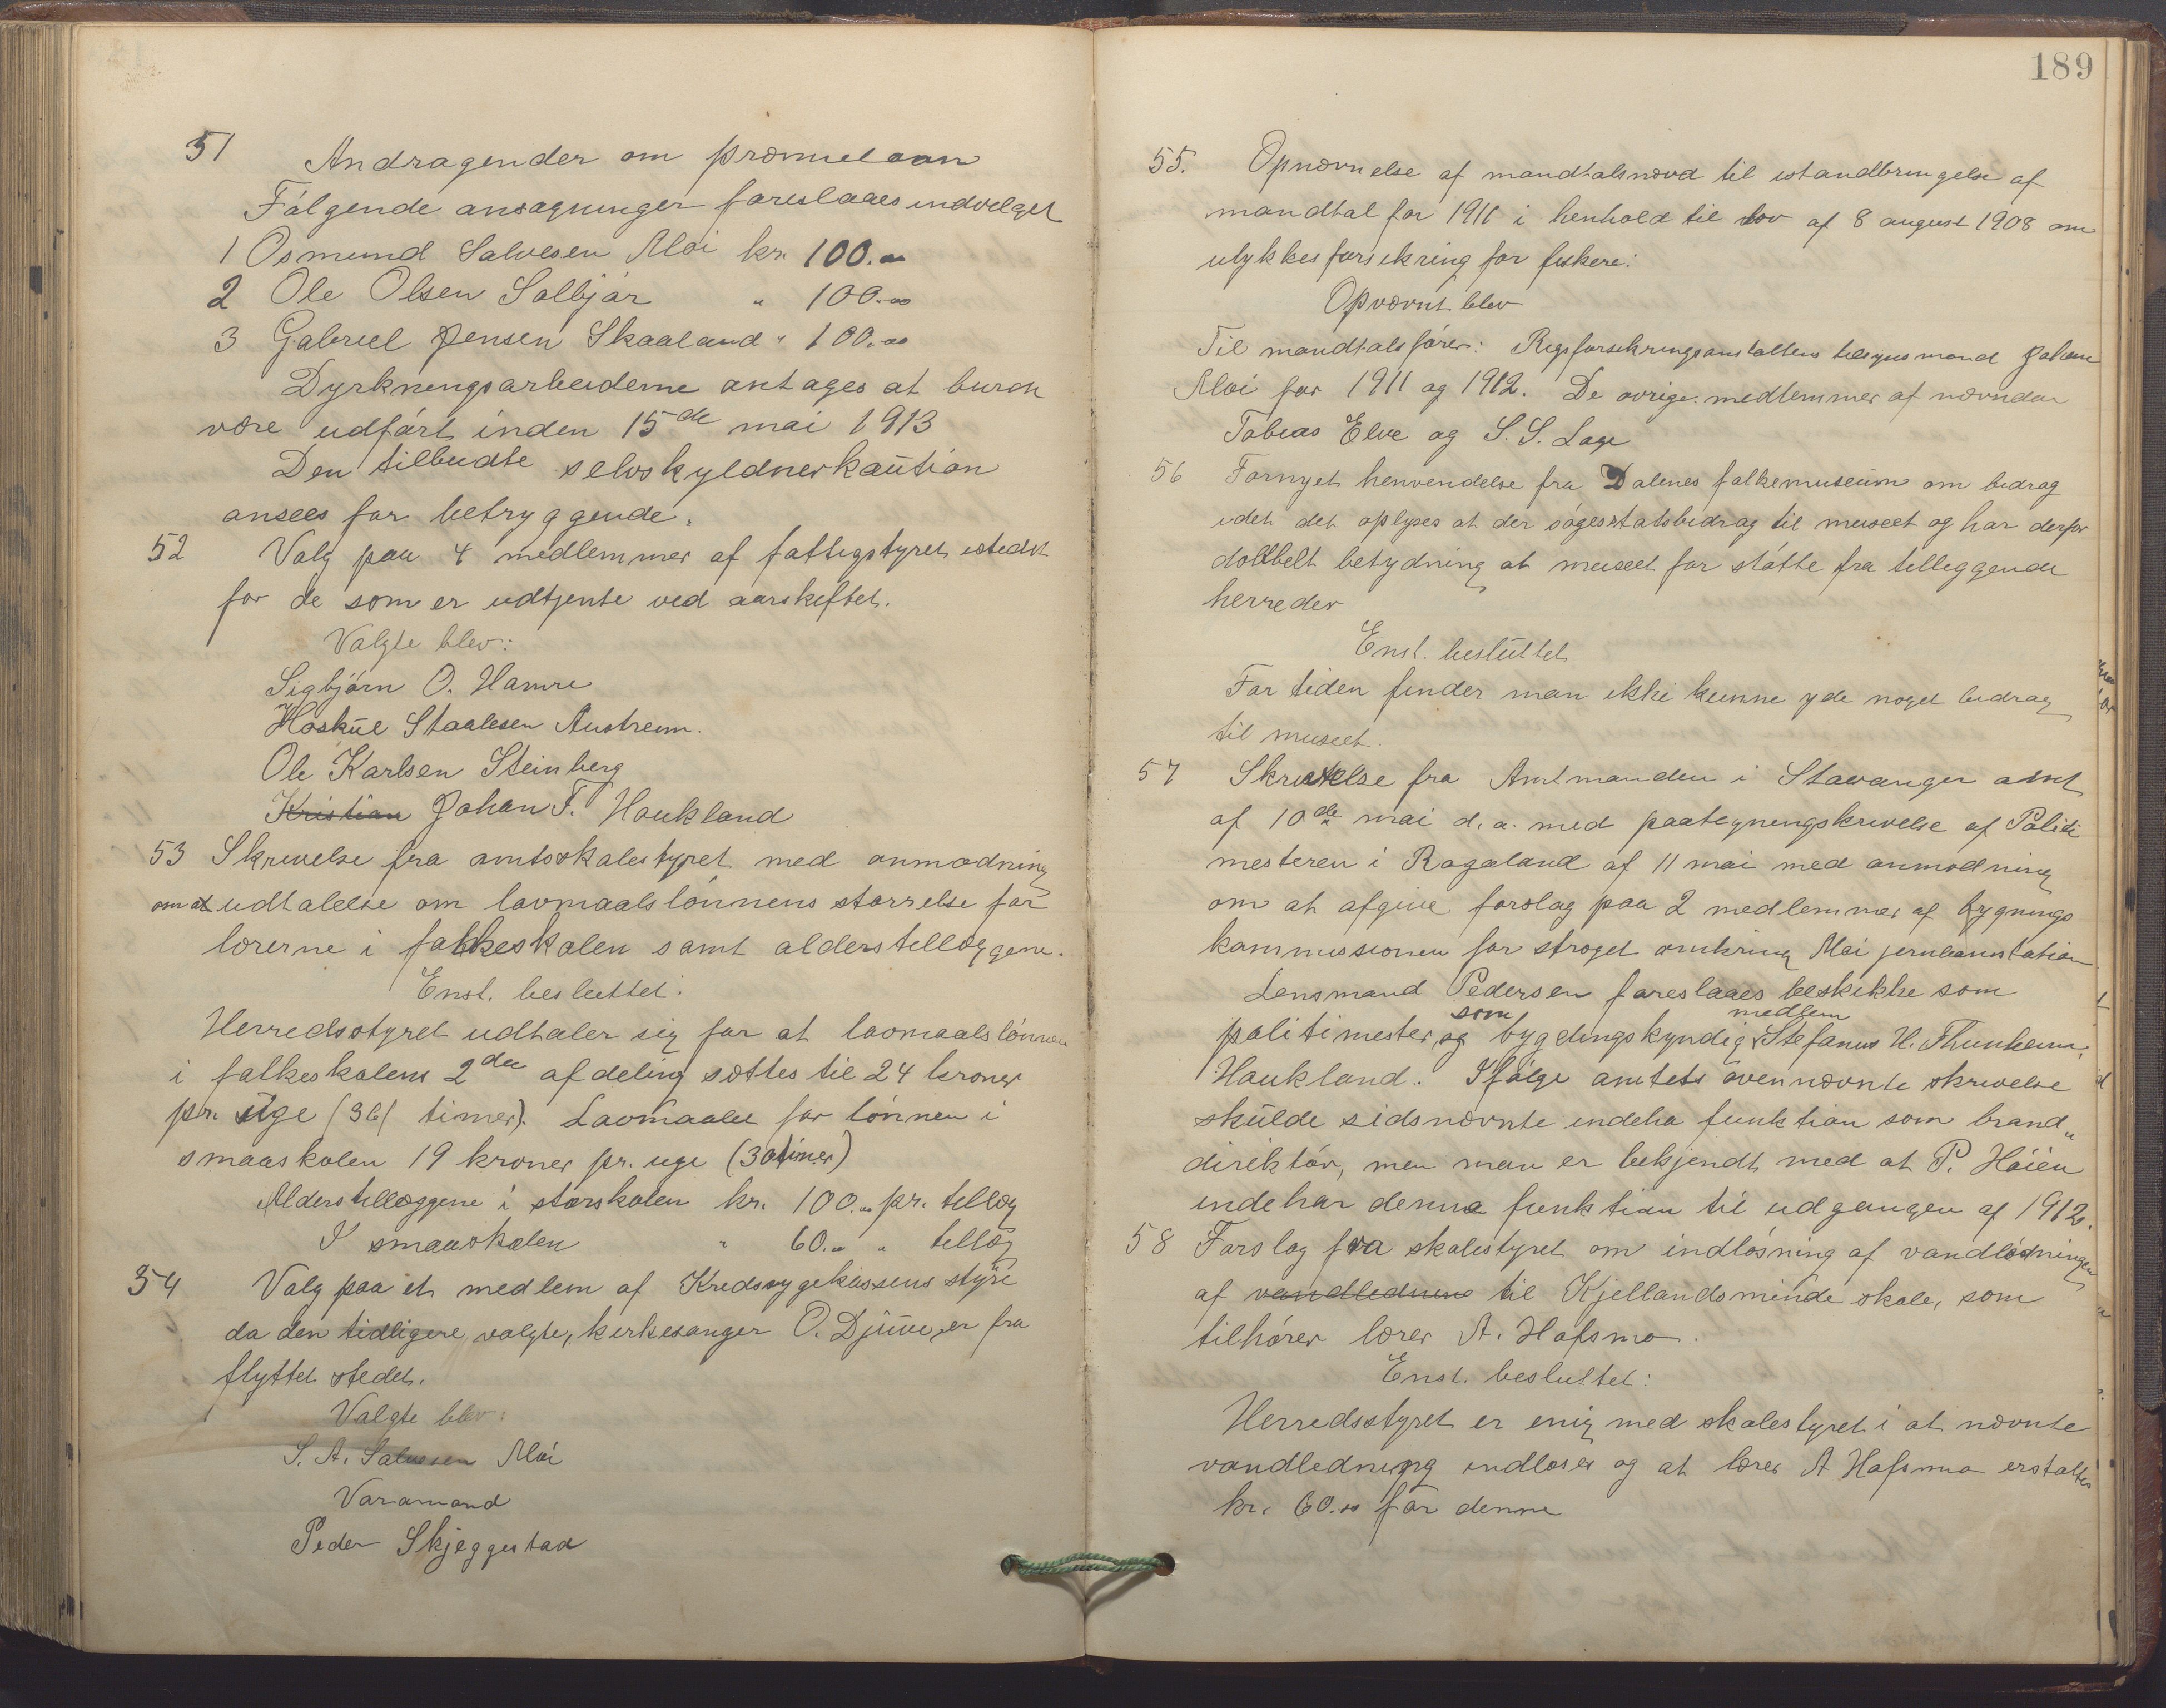 51 Andragender om præmielaan
Følgende ansøgninger foreslaaes indvilget
1 Osmund Salvesen Moi kr. 100.00
2 Ole Olsen Solbjør " 100.00
3 Gabriel Jensen Skaaland " 100.00
Dyrkningsarbeiderne antages at burde
være udført inden 15de mai 1913
Den tilbudte selvskyldnerkaution
ansees for betryggende.
52 Valg paa 4 medlemmer af fattigstyret istedet
for de som er udtjente ved aarskiftet.
Valgte blev:
Sigbjørn O. Hamre
Hoskul Staalesen Austreim.
Ole Karlsen Steinberg
Kristian Johan T. Haukland
53 Skrivelse fra amtsskolestyret med anmodning
om at udtalelse om lavmaalslønnens størrelse for
lærerne i folkeskolen samt alderstillæggene.
Enst. besluttet:
Herredsstyret udtaler sig for at lavmaalslønnen
i folkeskolens 2den afdeling sættes til 24 kroner
pr. uge (36 timer). Lavmaalet for lønnen i
smaaskolen 19 kroner pr. uge (30 timer)
Alderstillæggene i storskolen kr. 100.00 pr. tillæg
I smaaskolen " 60.00 " tillæg
54 Valg paa et medlem af Kredssygekassens styre
da den tidligere valgte, kirkesanger O. Djuve, er fra
flyttet stedet.
Valgte blev:
S. A. Salvesen Moi
Varamand
Peder Skjeggestad
189
55. Opnævnelse af mandtalsnævd til istandbringelse af
mandtal for 1911 i henhold til lov af 8 august 1908 om
ulykkesforsikring for fiskere:
Opnævnt blev
Til mandtalsfører: Rigsforsikringsanstaltens tilsynsmand Johan
Moi for 1911 og 1912. De øvrige medlemmer af nævnden
Tobias Elve og S. S. Lage
56 Fornyet henvendelse fra Dalenes folkemuseum om bidrag
idet det oplyses at der søges statsbidrag til museet og har derfor
dobbelt betydning at museet faar støtte fra tilliggende
herreder
Enst. besluttet
For tiden finder man ikke kunne yde noget bidrag
til museet.
57 Skrivelse fra Amtmanden i Stavanger amt
af 10de mai d. a. med paategningskrivelse af Politi
mesteren i Rogaland af 11 mai med anmodning
om at afgive forslag paa 2 medlemmer af bygnings
kommissionen for strøget omkring Moi jernbanestation
Lensmand Pedersen foreslaaes beskikke som
som medlem
politimester, og bygdingskyndig Stefanus H. Thunheim,
Haukland. Ifølge amtets ovennævnte skrivelse
skulde sidsnævnte indeha funktion som brand„
direktør, men man er bekjendt med at P. Høien
indehar denne funktion til udgangen af 1912.
58 Forslag fra skolestyret om indløsning af vandledningen
af vandledning til Kjellandsminde skole, som
tilhører lærer A. Hafsmo.
Enst. besluttet:
Herredsstyret er enig med skolestyret i at nævnte
vandledning indløses og at lærer A Hafsmo erstattes
kr. 60.00 for denne